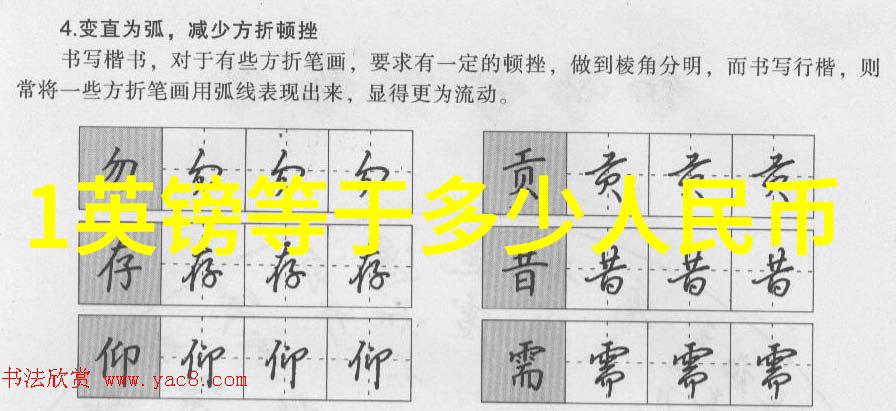 4.变直为弧，减少方折顿挫
书写楷书，对于有些方折笔画，要求有一定的顿挫，做到棱角分明，而书写行楷，则
常将一些方折笔画用弧线表现出来，显得更为流动。
勿 勿 勿 勿 贡 贡 贡 贡
1英镑等于多少人民币
存 存 存 存 昔 昔 昔 昔
仰 仰 仰 仰 需 需 需 需
书法欣赏 www.yac8.com